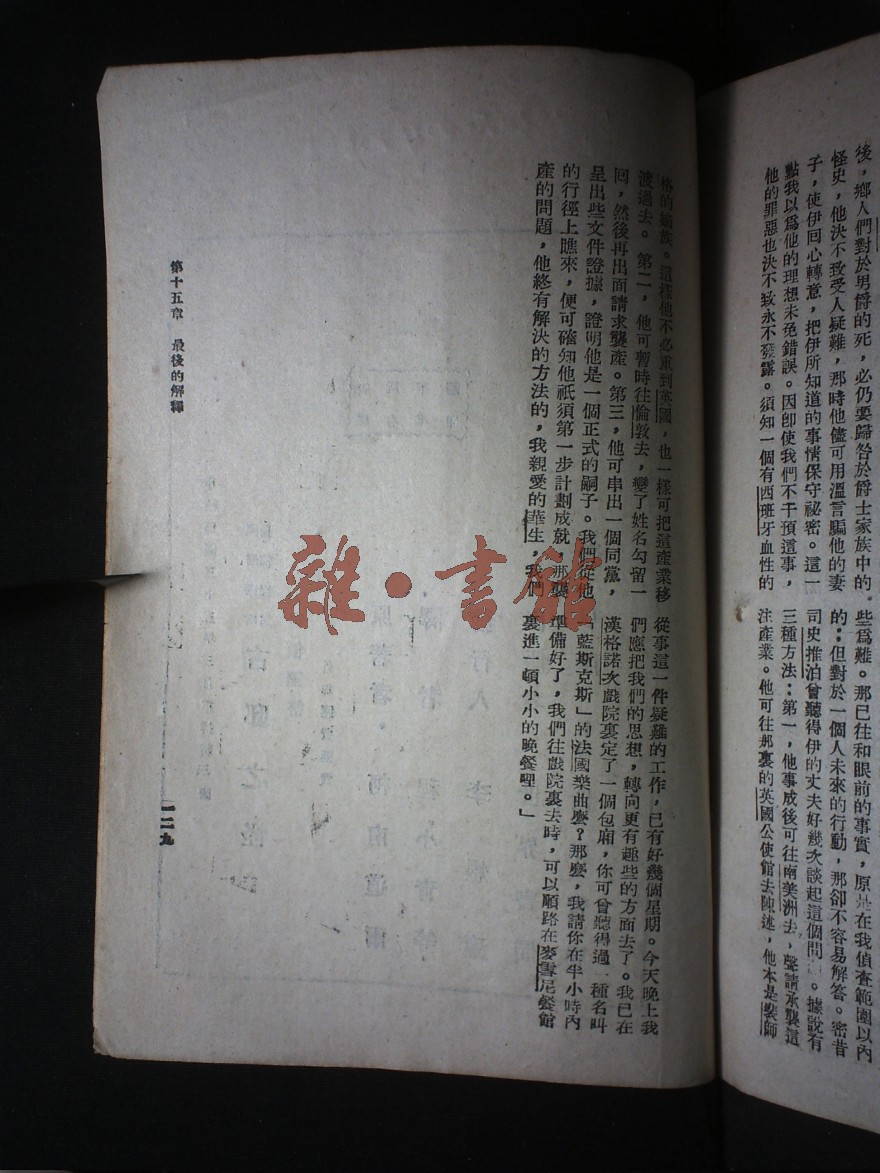 後，鄉人們對於男爵的死，必仍要歸咎於爵士家族中的
怪史，他決不致受人疑難，那時他儘可用溫言騙他的妻
子，使伊回心轉意，把伊所知道的事情保守祕密。這一
點我以爲他的理想未免錯誤。因卽使我們不干預這事，
他的罪惡也決不致永不發露。須知一個有西班牙血性的
些爲難。那已往和眼前的事實，原是在我偵查範圍以內
的；但對於一個人未來的行動，那卻不容易解答。密昔
司史推泊曾聽得伊的丈夫好幾次談起這個問。據說有
三種方法：第一，他事成後可往南美洲去，聲請承襲這
注產業。他可往那裏的英國公使館去陳述，他本是裴師
格的嫡族。這樣他不必重到英國，也一樣可把這產業移
渡過去。第二，他可暫時往倫敦去，變了姓名勾留一
回，然後再出面請求襲產。第三，他可串出一個同黨，
呈出些文件證據，證明他是一個正式的嗣子。我們從他
的行徑上瞧來，便可確知他祇須第一步計劃成就，那襲
產的問題，他終有解決的方法的，我親愛的華生，我們
從事這一件疑難的工作，已有好幾個星期。今天晚上我
們應把我們的思想，轉向更有趣些的方面去了。我已在
漢格諾次戲院裏定了一個包廂，你可曾聽得過一種名叫
「藍斯克斯」的法國樂曲麽？那麽，我請你在半小時內
準備好了，我們往戲院裏去時，可以順路在麥雪尼餐館
裏進一頓小小的晚餐哩。」
第十五章　最後的解釋
一二九
雜·書館